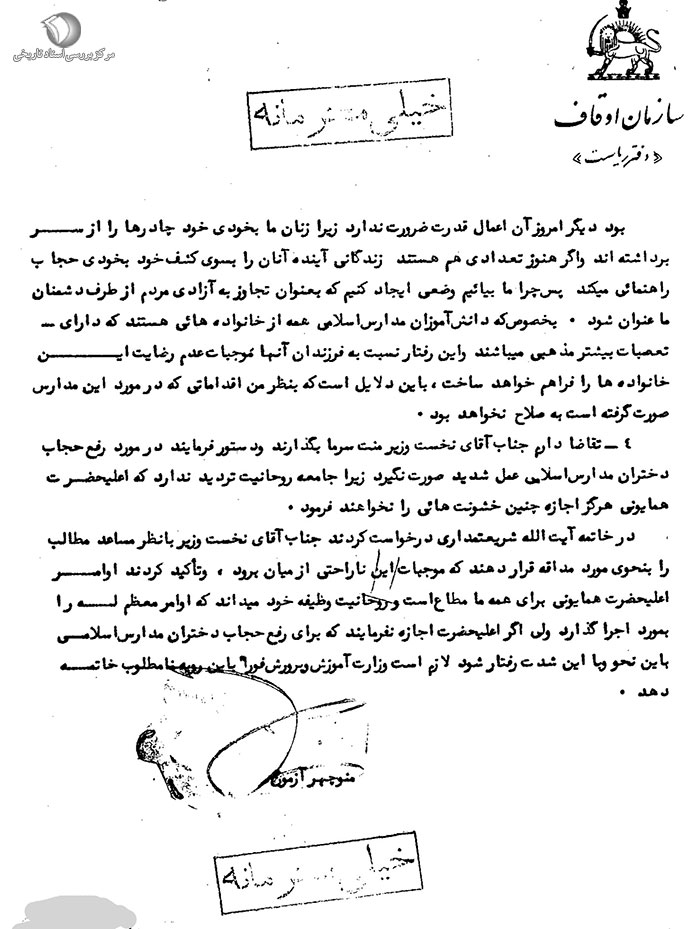 مرکز بررسی اسناد تاریخی
سازمان اوقاف
«دفتر ریاست»
خیلی محرمانه
بود دیگر امروز آن اعمال قدرت ضرورت ندارد زیرا زنان ما بخودی خود چادرها را از سر
برداشته اند واگر هنوز تعدادی هم هستند زندگانی آینده آنان را بسوی کشف خود بخودی حجاب
راهنمائی میکند پس چرا ما بیائیم وضعی ایجاد کنیم که بعنوان تجاوز به آزادی مردم از طرف دشمنان
ما عنوان شود ۰ بخصوص که دانش آموزان مدارس اسلامی همه از خانواده هائی هستند که دارای ــ
تعصبات بیشتر مذهبی میباشند واین رفتار نسبت به فرزندان آنها موجبات عدم رضایت ایـــن
خانواده ها را فراهم خواهد ساخت ، باین دلایل است که بنظر من اقداماتی که در مورد این مدارس
صورت گرفته است به صلاح نخواهد بود ۰
٤ ــ تقاضا دارم جناب آقای نخست وزیر منت سرما بگذارند ودستور فرمایند در مورد رفع حجاب
دختران مدارس اسلامی عمل شدید صورت نگیرد زیرا جامعه روحانیت تردید ندارد که اعلیحضرت
همایونی هرگز اجازه چنین خشونت هائی را نخواهند فرمود ۰
در خاتمه آیت الله شریعتمداری درخواست کردند جناب آقای نخست وزیر بانظر مساعد مطالب
را بنحوی مورد مداقه قرار دهند که موجبات این ناراحتی از میان برود ، وتأکید کردند اوامــر
اعلیحضرت همایونی برای همه ما مطاع است و روحانیت وظیفه خود میداند که اوامر معظم لــه را
بمورد اجرا گذارد ولی اگر اعلیحضرت اجازه نفرمایند که برای رفع حجاب دختران مدارس اسلامــی
باین نحو وبا این شدت رفتار شود لازم است وزارت آموزش وپرورش فوراً باین رویه نامطلوب خاتمــه
دهد ۰
منوچهر آزمون
خیلی محرمانه